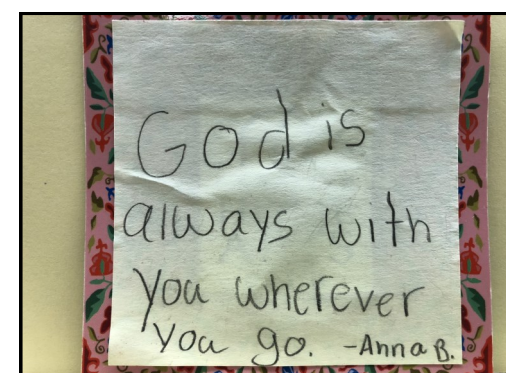 God is
always with
you wherever
you go. -Anna B.